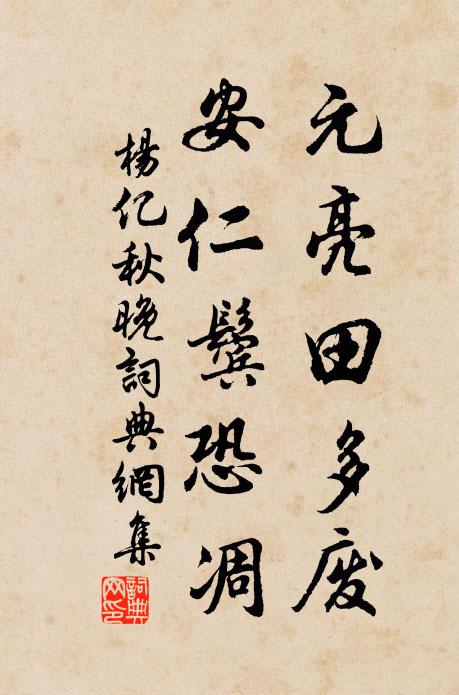 元亮田多废
安仁鬓恐凋
楊亿秋晚詞典網集
詞典网印